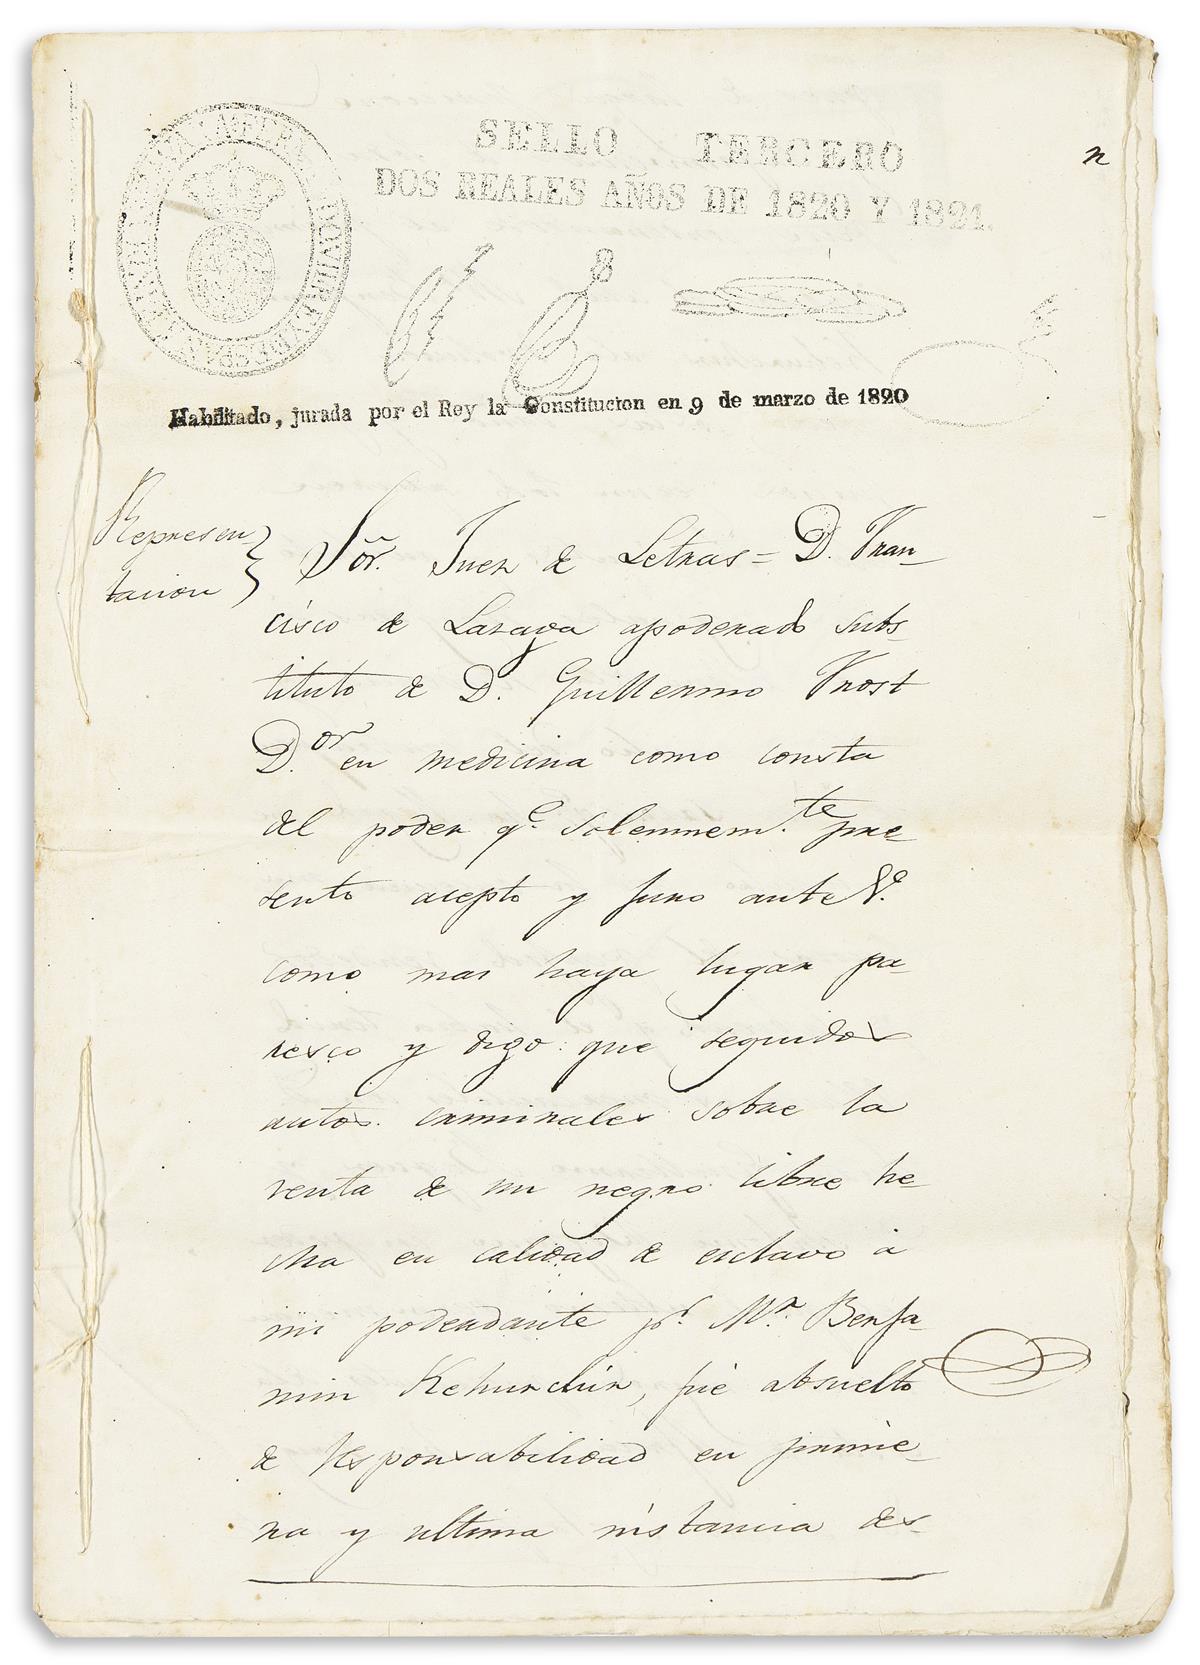 SELLO TERCERO
DOS REALES AÑOS DE 1820 Y 1821.
n
8
Habilitado, jurada por el Rey la Constitucion en 9 de marzo de 1820
Represen
tacion
Sõr. Juez de Letras = D. Fran-
cisco de Lazaga apoderado subs-
tituto de D. Guillermo Frost
D.or en medicina como consta
del poder q.e solemnem.te pre-
sento acepto y juro ante V.
como mas haya lugar pa-
resco y digo: que seguidos
autos criminales sobre la
venta de un negro libre he-
cha en calidad de esclavo à
mi poderdante p.r M.r Benja-
min , fué absuelto
de responsabilidad en prime-
ra y ultima instancia des-